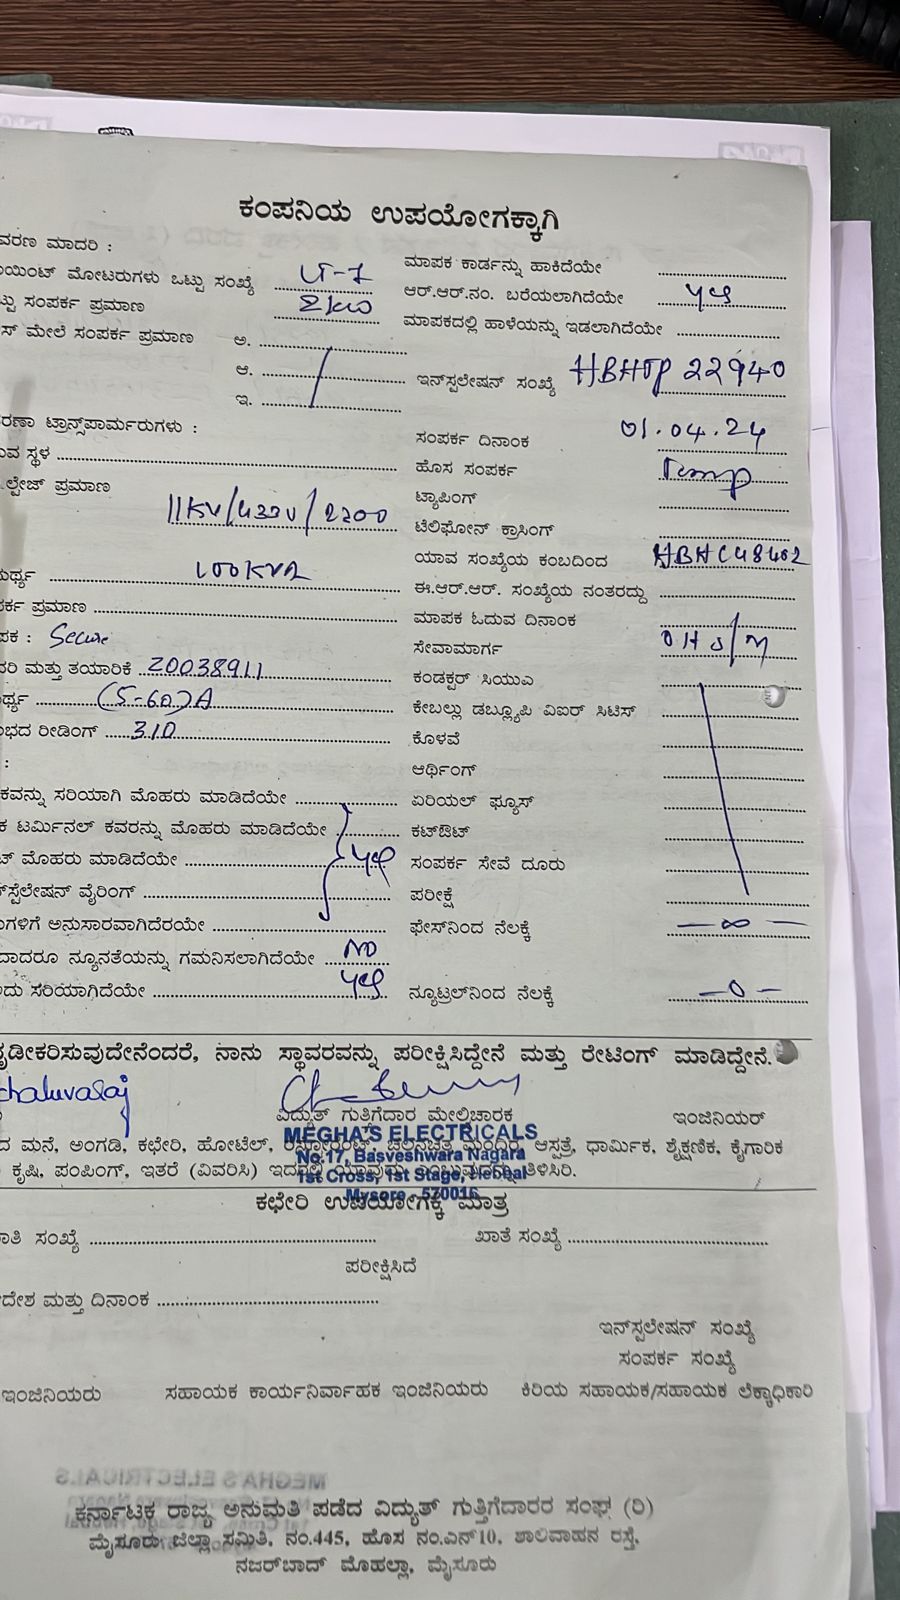 ಕಂಪನಿಯ ಉಪಯೋಗಕ್ಕಾಗಿ
ವರಣ ಮಾದರಿ :
ಮಾಪಕ ಕಾರ್ಡನ್ನು ಹಾಕಿದೆಯೇ
ಯಿಂಟ್ ಮೋಟರುಗಳು ಒಟ್ಟು ಸಂಖ್ಯೆ
ಆರ್.ಆರ್.ನಂ. ಬರೆಯಲಾಗಿದೆಯೇ yes
ಟ್ಟು ಸಂಪರ್ಕ ಪ್ರಮಾಣ 2kw
ಮಾಪಕದಲ್ಲಿ ಹಾಳೆಯನ್ನು ಇಡಲಾಗಿದೆಯೇ
ಸ್ ಮೇಲೆ ಸಂಪರ್ಕ ಪ್ರಮಾಣ ಅ.
ಆ.
ಇನ್ಸ್ಪಲೇಷನ್ ಸಂಖ್ಯೆ HBHTP 22940
ಇ.
ರಣಾ ಟ್ರಾನ್ಸ್‌ಪಾರ್ಮರುಗಳು :
ಸಂಪರ್ಕ ದಿನಾಂಕ 01.04.24
ವ ಸ್ಥಳ
ಹೊಸ ಸಂಪರ್ಕ Temp
ಲ್ಟೇಜ್ ಪ್ರಮಾಣ 11KV/433V/2200
ಟ್ಯಾಪಿಂಗ್
ಟೆಲಿಫೋನ್ ಕ್ರಾಸಿಂಗ್
ಯಾವ ಸಂಖ್ಯೆಯ ಕಂಬದಿಂದ HBHC48402
ರ್ಥ್ಯ 100KVA
ಈ.ಆರ್.ಆರ್. ಸಂಖ್ಯೆಯ ನಂತರದ್ದು
ರ್ಕ ಪ್ರಮಾಣ
ಮಾಪಕ ಓದುವ ದಿನಾಂಕ
ಪಕ : Secure
ಸೇವಾಮಾರ್ಗ
ದರಿ ಮತ್ತು ತಯಾರಿಕೆ 20038911
ಕಂಡಕ್ಟರ್ ಸಿಯುಎ
ರ್ಥ್ಯ (5-60)A
ಕೇಬಲ್ಲು ಡಬ್ಲ್ಯೂಪಿ ವಿಐರ್ ಸಿಟಿಸ್
ಭದ ರೀಡಿಂಗ್ 310
ಕೊಳವೆ
:
ಆರ್ಥಿಂಗ್
ಕವನ್ನು ಸರಿಯಾಗಿ ಮೊಹರು ಮಾಡಿದೆಯೇ
ಏರಿಯಲ್ ಫ್ಯೂಸ್
ಕ ಟರ್ಮಿನಲ್ ಕವರನ್ನು ಮೊಹರು ಮಾಡಿದೆಯೇ
ಕಟ್‌ಔಟ್
ಟ್ ಮೊಹರು ಮಾಡಿದೆಯೇ yes
ಸಂಪರ್ಕ ಸೇವೆ ದೂರು
ಸ್ಪೆಲೇಷನ್ ವೈರಿಂಗ್
ಪರೀಕ್ಷೆ
ಗಳಿಗೆ ಅನುಸಾರವಾಗಿದೆರಯೇ
ಫೇಸ್‌ನಿಂದ ನೆಲಕ್ಕೆ — ∞ —
ದಾದರೂ ನ್ಯೂನತೆಯನ್ನು ಗಮನಿಸಲಾಗಿದೆಯೇ NO
ದು ಸರಿಯಾಗಿದೆಯೇ yes
ನ್ಯೂಟ್ರಲ್‌ನಿಂದ ನೆಲಕ್ಕೆ — 0 —
ೃಡೀಕರಿಸುವುದೇನೆಂದರೆ, ನಾನು ಸ್ಥಾವರವನ್ನು ಪರೀಕ್ಷಿಸಿದ್ದೇನೆ ಮತ್ತು ರೇಟಿಂಗ್ ಮಾಡಿದ್ದೇನೆ.
chaluvaraj
ವಿದ್ಯುತ್ ಗುತ್ತಿಗೆದಾರ ಮೇಲ್ವಿಚಾರಕ
ಇಂಜಿನಿಯರ್
MEGHA'S ELECTRICALS
No.17, Basveshwara Nagara
1st Cross, 1st Stage, Hebbal
Mysore - 570016
ದ ಮನೆ, ಅಂಗಡಿ, ಕಛೇರಿ, ಹೋಟೆಲ್, ಆಸ್ಪತ್ರೆ, ಧಾರ್ಮಿಕ, ಶೈಕ್ಷಣಿಕ, ಕೈಗಾರಿಕ
ಕೃಷಿ, ಪಂಪಿಂಗ್, ಇತರೆ (ವಿವರಿಸಿ) ತಿಳಿಸಿರಿ.
ಕಛೇರಿ ಉಪಯೋಗಕ್ಕೆ ಮಾತ್ರ
ಾತಿ ಸಂಖ್ಯೆ
ಖಾತೆ ಸಂಖ್ಯೆ
ಪರೀಕ್ಷಿಸಿದೆ
ದೇಶ ಮತ್ತು ದಿನಾಂಕ
ಇನ್ಸ್ಪಲೇಷನ್ ಸಂಖ್ಯೆ
ಸಂಪರ್ಕ ಸಂಖ್ಯೆ
ಇಂಜಿನಿಯರು ಸಹಾಯಕ ಕಾರ್ಯನಿರ್ವಾಹಕ ಇಂಜಿನಿಯರು ಕಿರಿಯ ಸಹಾಯಕ/ಸಹಾಯಕ ಲೆಕ್ಕಾಧಿಕಾರಿ
ಕರ್ನಾಟಕ ರಾಜ್ಯ ಅನುಮತಿ ಪಡೆದ ವಿದ್ಯುತ್ ಗುತ್ತಿಗೆದಾರರ ಸಂಘ (ರಿ)
ಮೈಸೂರು ಜಿಲ್ಲಾ ಸಮಿತಿ, ನಂ.445, ಹೊಸ ನಂ.ಎನ್10, ಶಾಲಿವಾಹನ ರಸ್ತೆ,
ನಜರ್‌ಬಾದ್ ಮೊಹಲ್ಲಾ, ಮೈಸೂರು